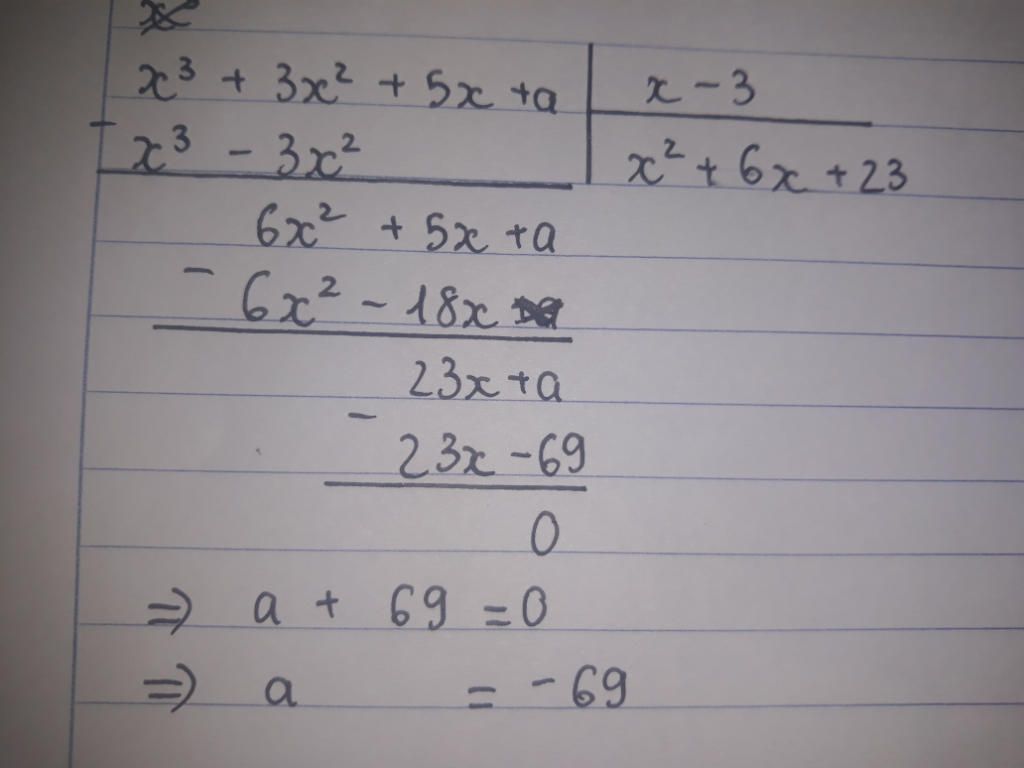 x³ + 3x² + 5x + a | x - 3
- x³ - 3x² | x² + 6x + 23
6x² + 5x + a
- 6x² - 18x
23x + a
- 23x - 69
0
⇒ a + 69 = 0
⇒ a = - 69